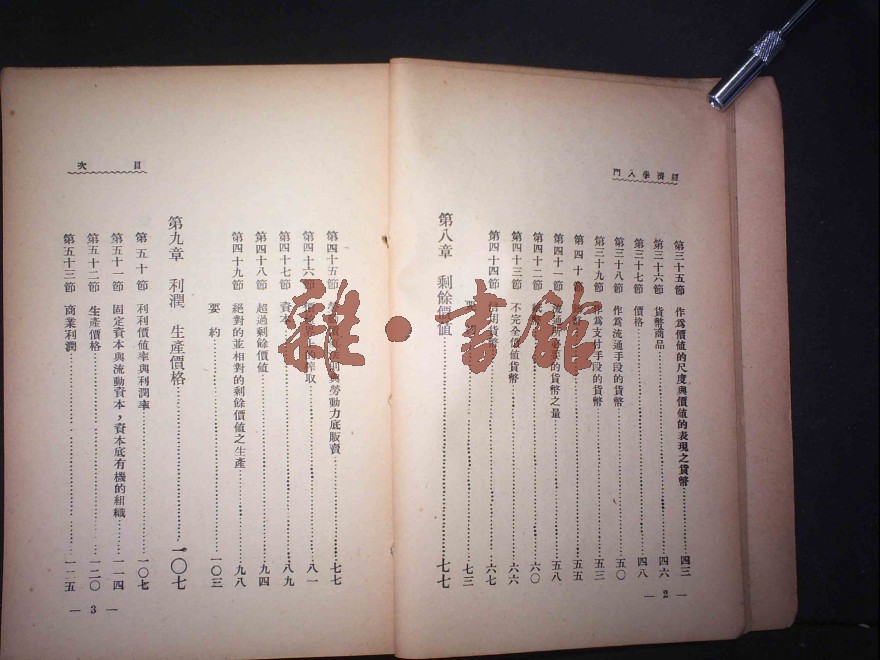 經濟學入門
第三十五節 作爲價値的尺度與價値的表現之貨幣 四三
第三十六節 貨幣商品 四六
第三十七節 價格 四八
第三十八節 作爲流通手段的貨幣 五〇
第三十九節 作爲支付手段的貨幣 五三
第四十節 五五
第四十一節 流通所必要的貨幣之量 五八
第四十二節 六〇
第四十三節 不完全價値貨幣 六六
第四十四節 信用貨幣 六七
要約 七三
第八章 剩餘價値 七七
— 2 —
目次
第四十五節 與勞動力底販賣 七七
第四十六節 搾取 八一
第四十七節 資本 八九
第四十八節 超過剩餘價値 九四
第四十九節 絕對的並相對的剩餘價値之生產 九八
要約 一〇三
第九章 利潤 生產價格 一〇七
第五十節 利利價値率與利潤率 一〇七
第五十一節 固定資本與流動資本，資本底有機的組織 一一四
第五十二節 生產價格 一二〇
第五十三節 商業利潤 一二五
— 3 —
雜·書館